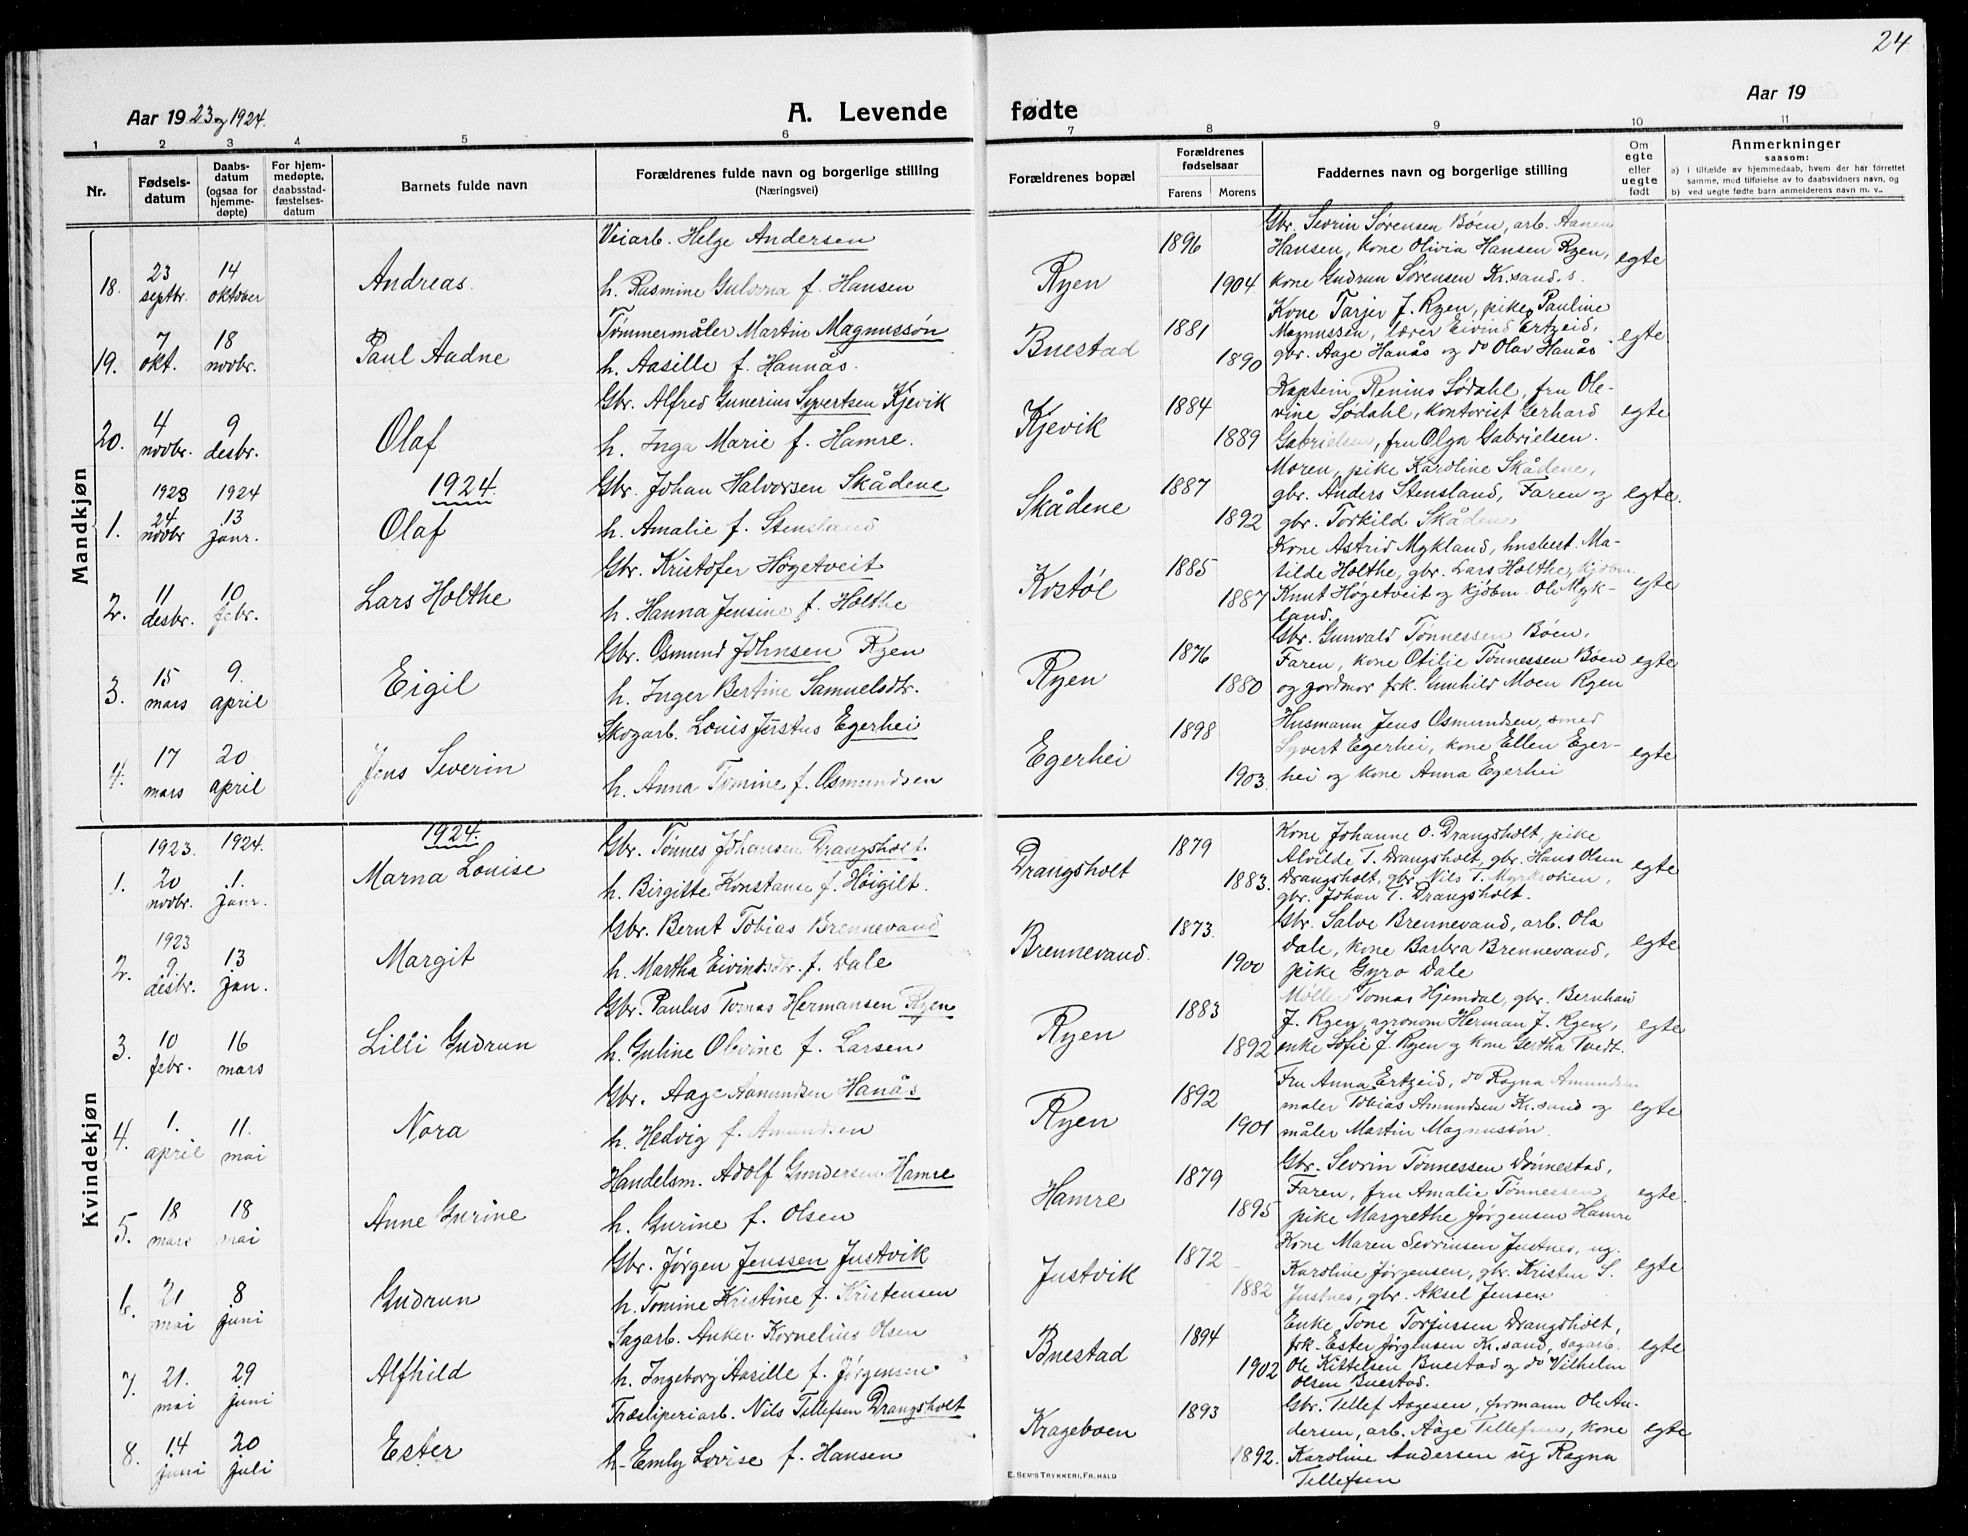 24
Aar 1923 og 1924.
A. Levende fødte
Aar 19
1 2 3 4 5 6 7 8 9 10 11
Nr.
Fødsels-
datum
Daabs-
datum
(ogsaa for
hjemme-
døpte)
For hjem-
medøpte,
daabsstad-
fæstelses-
datum
Barnets fulde navn
Forældrenes fulde navn og borgerlige stilling
(Næringsvei)
Forældrenes bopæl
Forældrenes
fødselsaar
Farens Morens
Faddernes navn og borgerlige stilling
Om
egte
eller
uegte
født
Anmerkninger
saasom:
a) i tilfælde av hjemmedaab, hvem der har forrettet
samme, med tilføielse av to daabsvidners navn, og
b) ved uegte fødte barn anmelderens navn m. v..
Mandkjøn
18. 23 septbr. 14 oktober Andreas.
Veiarb. Helge Andersen
h. Rasmine Gulovna f. Hansen
Ryen 1896 1904
Gbr. Sevrin Sørensen Bøen, arb. Aanen
Hansen, kone Olivia Hansen Ryen,
kone Gudrun Sørensen Kr.sand.s.
egte
19. 7 okt. 18 novbr. Paul Aadne
Tømmermåler Martin Magnussøn
h. Aasille f. Hannås.
Buestad 1881 1890
Kone Tarjer J. Ryen, pike Pauline
Magnussen, lærer Eivind Ertzeid,
gbr. Aage Hanås og do Olav Hanås
egte
20. 4 novbr. 9 desbr. Olaf
Gbr. Alfred Gunerius Syvertsen Kjevik
h. Inga Marie f. Hamre.
Kjevik 1884 1889
Kaptein Renius Sødahl, fru Ole-
vine Sødahl, kontorist Gerhard
Gabrielsen, fru Olga Gabrielsen.
egte
1924.
1. 1923 24 novbr 1924 13 janr. Olaf
Gbr. Johan Halvorsen Skådene
h. Amalie f. Stensland
Skådene 1887 1892
Moren, pike Karoline Skådene,
gbr. Anders Stensland, Faren og
gbr. Torkild Skådene
egte.
2. 11 desbr. 10 febr. Lars Holthe
Gbr. Kristofer Høgetveit
h. Hanna Jensine f. Holthe
Kostøl 1885 1887
Kone Astrid Mykland, husbest. Ma-
tilde Holthe, gbr. Lars Holthe, kjøbm.
Knut Høgetveit og kjøbm. Ole Myk-
land.
egte
3. 15 mars 9. april Eigil
Gbr. Osmund Johnsen Ryen
h. Inger Bertine Samuelsdtr.
Ryen 1876 1880
Gbr. Gunvald Tønnessen Bøen,
Faren, kone Otilie Tønnessen Bøen
og jordmor frk. Gunhild Moen Ryen
egte
4. 17 mars 20 april Jens Severin
Skogarb. Louis Justus Egerhei
h. Anna Tomine f. Osmundsen
Egerhei 1898 1903.
Husmann Jens Osmundsen, smed
Syvert Egerhei, kone Ellen Eger-
hei og kone Anna Egerhei
egte
Kvindekjøn
1924.
1. 1923. 20 novbr. 1924. 1. janr. Marna Louise
Gbr. Tønnes Johansen Drangsholt.
h. Birgitte Konstanse f. Høigilt.
Drangsholt 1879 1883.
Kone Johanne O. Drangsholt, pike
Alvilde T. Drangsholt, gbr. Hans Olsen
Drangsholt, gbr. Nils T. Myrkroken,
gbr. Johan T. Drangsholt.
egte
2. 1923 9 desbr. 13 jan. Margit
Gbr. Bernt Tobias Brennevand
h. Martha Eivindsdtr. f. Dale
Brennevand. 1873. 1900
Gbr. Salve Brennevand, arb. Ola
Dale, kone Barbra Brennevand,
pike Gyro Dale
egte
3. 10 febr. 16 mars Lilli Gudrun
Gbr. Paulus Tomas Hermansen Ryen
h. Guline Olevine f. Larsen
Ryen 1883 1892
Møller Tomas Hjemdal, gbr. Bernhard
J. Ryen, agronom Herman J. Ryen,
enke Sofie J. Ryen og kone Gertha Tvedt.
egte
4. 1. april 11. mai Nora
Gbr. Aage Aamundsen Hanås
h. Hedvig f. Amundsen
Ryen 1892 1901
Fru Anna Ertzeid, do Ragna Amundsen
maler Tobias Amundsen Kr.sand og
måler Martin Magnussøn.
egte
5. 18 mars 18 mai Anne Gurine
Handelsm. Adolf Gundersen Hamre
h. Gurine f. Olsen
Hamre 1879 1895
Gbr. Sevrin Tønnessen Dønnestad,
Faren, fru Amalie Tønnessen,
pike Margrethe Jørgensen Hamre
egte.
6. 21 mai 8 juni Gudrun
Gbr. Jørgen Jenssen Justvik
h. Tomine Kristine f. Kristensen
Justvik 1872 1882
Kone Maren Sevrinsen Justnes, ug.
Karoline Jørgensen, gbr. Kristen S.
Justnes, gbr. Aksel Jensen
egte
7. 21. mai 29 juni Alfhild
Sagarb. Anker Kornelius Olsen
h. Ingeborg Aasille f. Jørgensen
Buestad 1894 1902
Enke Tone Torjussen Drangsholt,
frk. Ester Jørgensen Kr.sand, sagarb.
Ole Kittelsen Buestad og do Vilhelm
Olsen Buestad.
egte
8. 14 juni 20 juli Ester
Træsliperiarb. Nils Tellefsen Drangsholt
h. Emly Lovise f. Hansen
Krageboen 1893 1892.
Gbr. Tellef Aagesen, formann Ole An-
dersen, arb. Aage Tellefsen, kone
Karoline Andersen ug Ragna
Tellefsen
egte
E. SEM'S TRYKKERI, FR. HALD